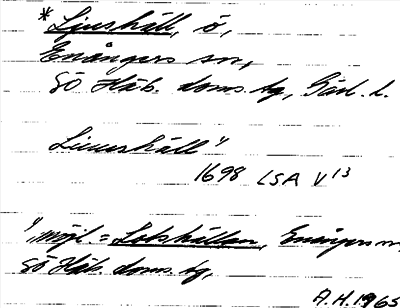 * Ljushäll, ö,
Enångers sn,
SÖ Häls. doms. tg, Gävl. l.
Liuushäll"
1698 LSA V 13
" möjl. = Lotshällan, Enångers sn,
SÖ Häls. doms. tg,
A.H. 1965